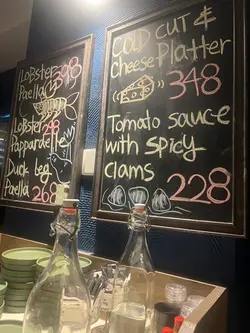 Lobster 298
Paella
Lobster
Pappardelle
Duck Leg
Paella 268
COLD CUT &
cheese Platter
348
Tomato sauce
with spicy
clams
228